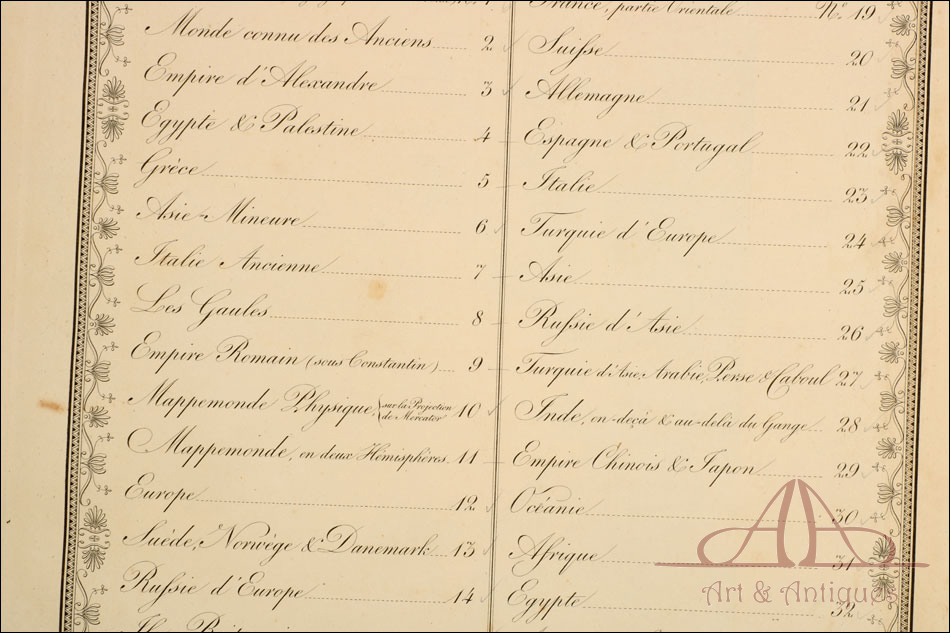 Monde connu des Anciens 2
Empire d'Alexandre 3
Egypte & Palestine 4
Grèce 5
Asie-Mineure 6
Italie Ancienne 7
Les Gaules 8
Empire Romain (sous Constantin) 9
Mappemonde Physique, (sur la Projection de Mercator 10
Mappemonde, en deux Hémisphères. 11
Europe 12
Suède, Norwège & Danemark 13
Russie d'Europe 14
France, partie Orientale No. 19
Suisse 20
Allemagne 21
Espagne & Portugal 22
Italie 23
Turquie d'Europe 24
Asie 25
Russie d'Asie 26
Turquie d'Asie, Arabie, Perse & Caboul 27
Inde, en-deçà & au-delà du Gange 28
Empire Chinois & Japon 29
Océanie 30
Afrique 31
Egypte 32
Art & Antiques